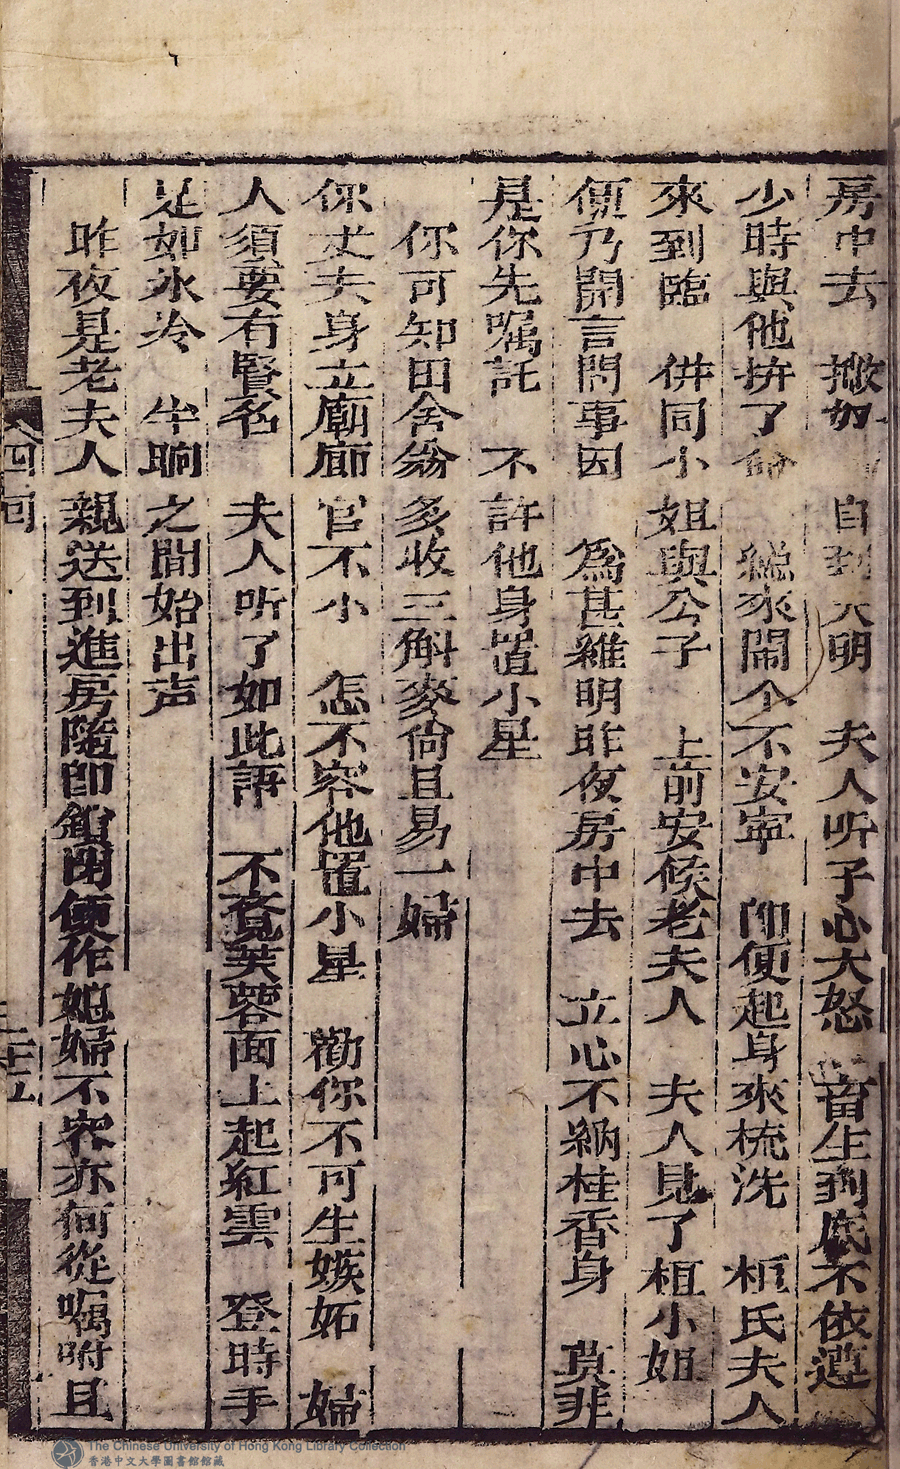 房中去　撇如　自到天明　夫人听了心大怒　畜生到底不依遵
少時與他拚了命　總來鬧个不安寧　即便起身來梳洗　桓氏夫人
來到臨　併同小姐與公子　上前安候老夫人　夫人見了桓小姐
便乃開言問事因　爲甚雞明昨夜房中去　立心不納桂香身　莫非
是你先嘱託　不許他身置小星
你可知田舍翁多收三斛麥尙且易一婦
你丈夫身立廟廊官不小　怎不容他置小星　勸你不可生嫉妬　婦
人須要有賢名　夫人听了如此語　不覺芙蓉面上起紅雲　登時手
足如氷冷　半晌之間始出声
昨夜是老夫人親送到進房隨即鎖閉便作媳婦不容亦何從嘱咐且
四回
The Chinese University of Hong Kong Library Collection
香港中文大學圖書館館藏